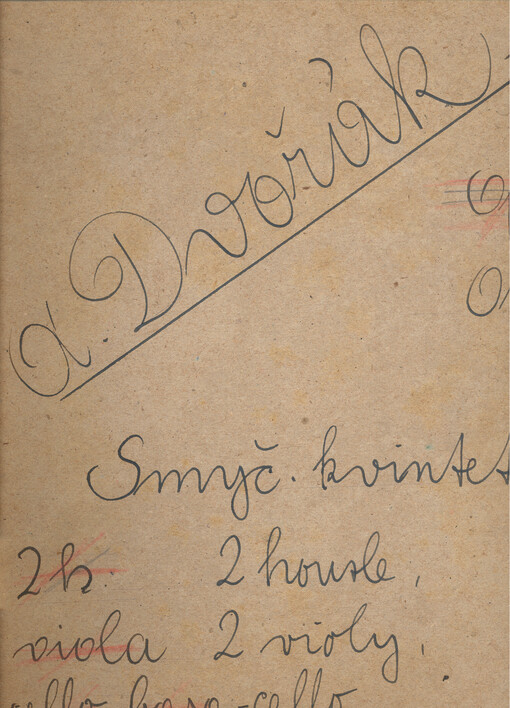 A. Dvořák
Smyč. kvintet
2 h. 2 housle,
viola 2 violy,
cello basa-cello